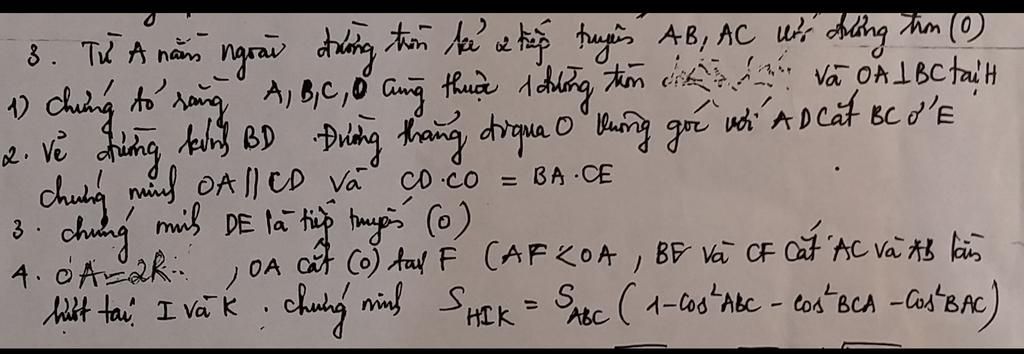 3. Từ A nằm ngoài đường tròn kẻ 2 tiếp tuyến AB, AC với đường tròn (O)
1) chứng tỏ rằng A, B, C, O cùng thuộc 1 đường tròn và OA ⊥ BC tại H
2. Vẽ đường kính BD. Đường thẳng đi qua O vuông góc với AD cắt BC ở E
chứng minh OA || CD và CD.CO = BA.CE
3. chứng minh DE là tiếp tuyến (O)
4. OA = 2R, OA cắt (O) tại F (AF < OA, BF và CF cắt AC và AB lần
lượt tại I và K. chứng minh S_HIK = S_ABC (1 - Cos²ABC - Cos²BCA - Cos²BAC)